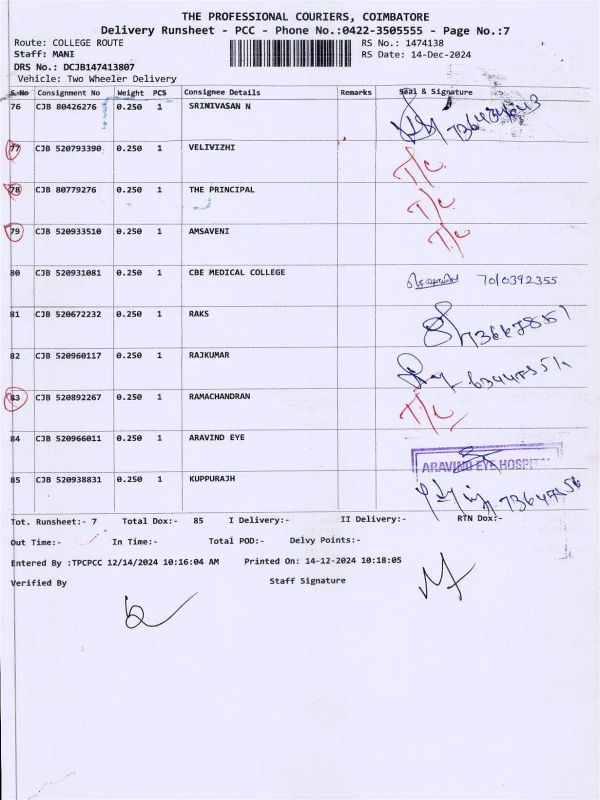 THE PROFESSIONAL COURIERS, COIMBATORE
Delivery Runsheet - PCC - Phone No.:0422-3505555 - Page No.:7
Route: COLLEGE ROUTE RS No.: 1474138
Staff: MANI RS Date: 14-Dec-2024
DRS No.: DCJB147413807
Vehicle: Two Wheeler Delivery
S.No Consignment No Weight PCS Consignee Details Remarks Seal & Signature
76 CJB 80426276 0.250 1 SRINIVASAN N
77 CJB 520793390 0.250 1 VELIVIZHI T/C
78 CJB 80779276 0.250 1 THE PRINCIPAL T/C
79 CJB 520933510 0.250 1 AMSAVENI T/C
80 CJB 520931081 0.250 1 CBE MEDICAL COLLEGE 7010392355
81 CJB 520672232 0.250 1 RAKS
82 CJB 520960117 0.250 1 RAJKUMAR
83 CJB 520892267 0.250 1 RAMACHANDRAN T/C
84 CJB 520966011 0.250 1 ARAVIND EYE ARAVIND EYE HOSPITAL
85 CJB 520938831 0.250 1 KUPPURAJH
Tot. Runsheet:- 7 Total Dox:- 85 I Delivery:- II Delivery:- RTN Dox:-
Out Time:- In Time:- Total POD:- Delvy Points:-
Entered By :TPCPCC 12/14/2024 10:16:04 AM Printed On: 14-12-2024 10:18:05
Verified By Staff Signature